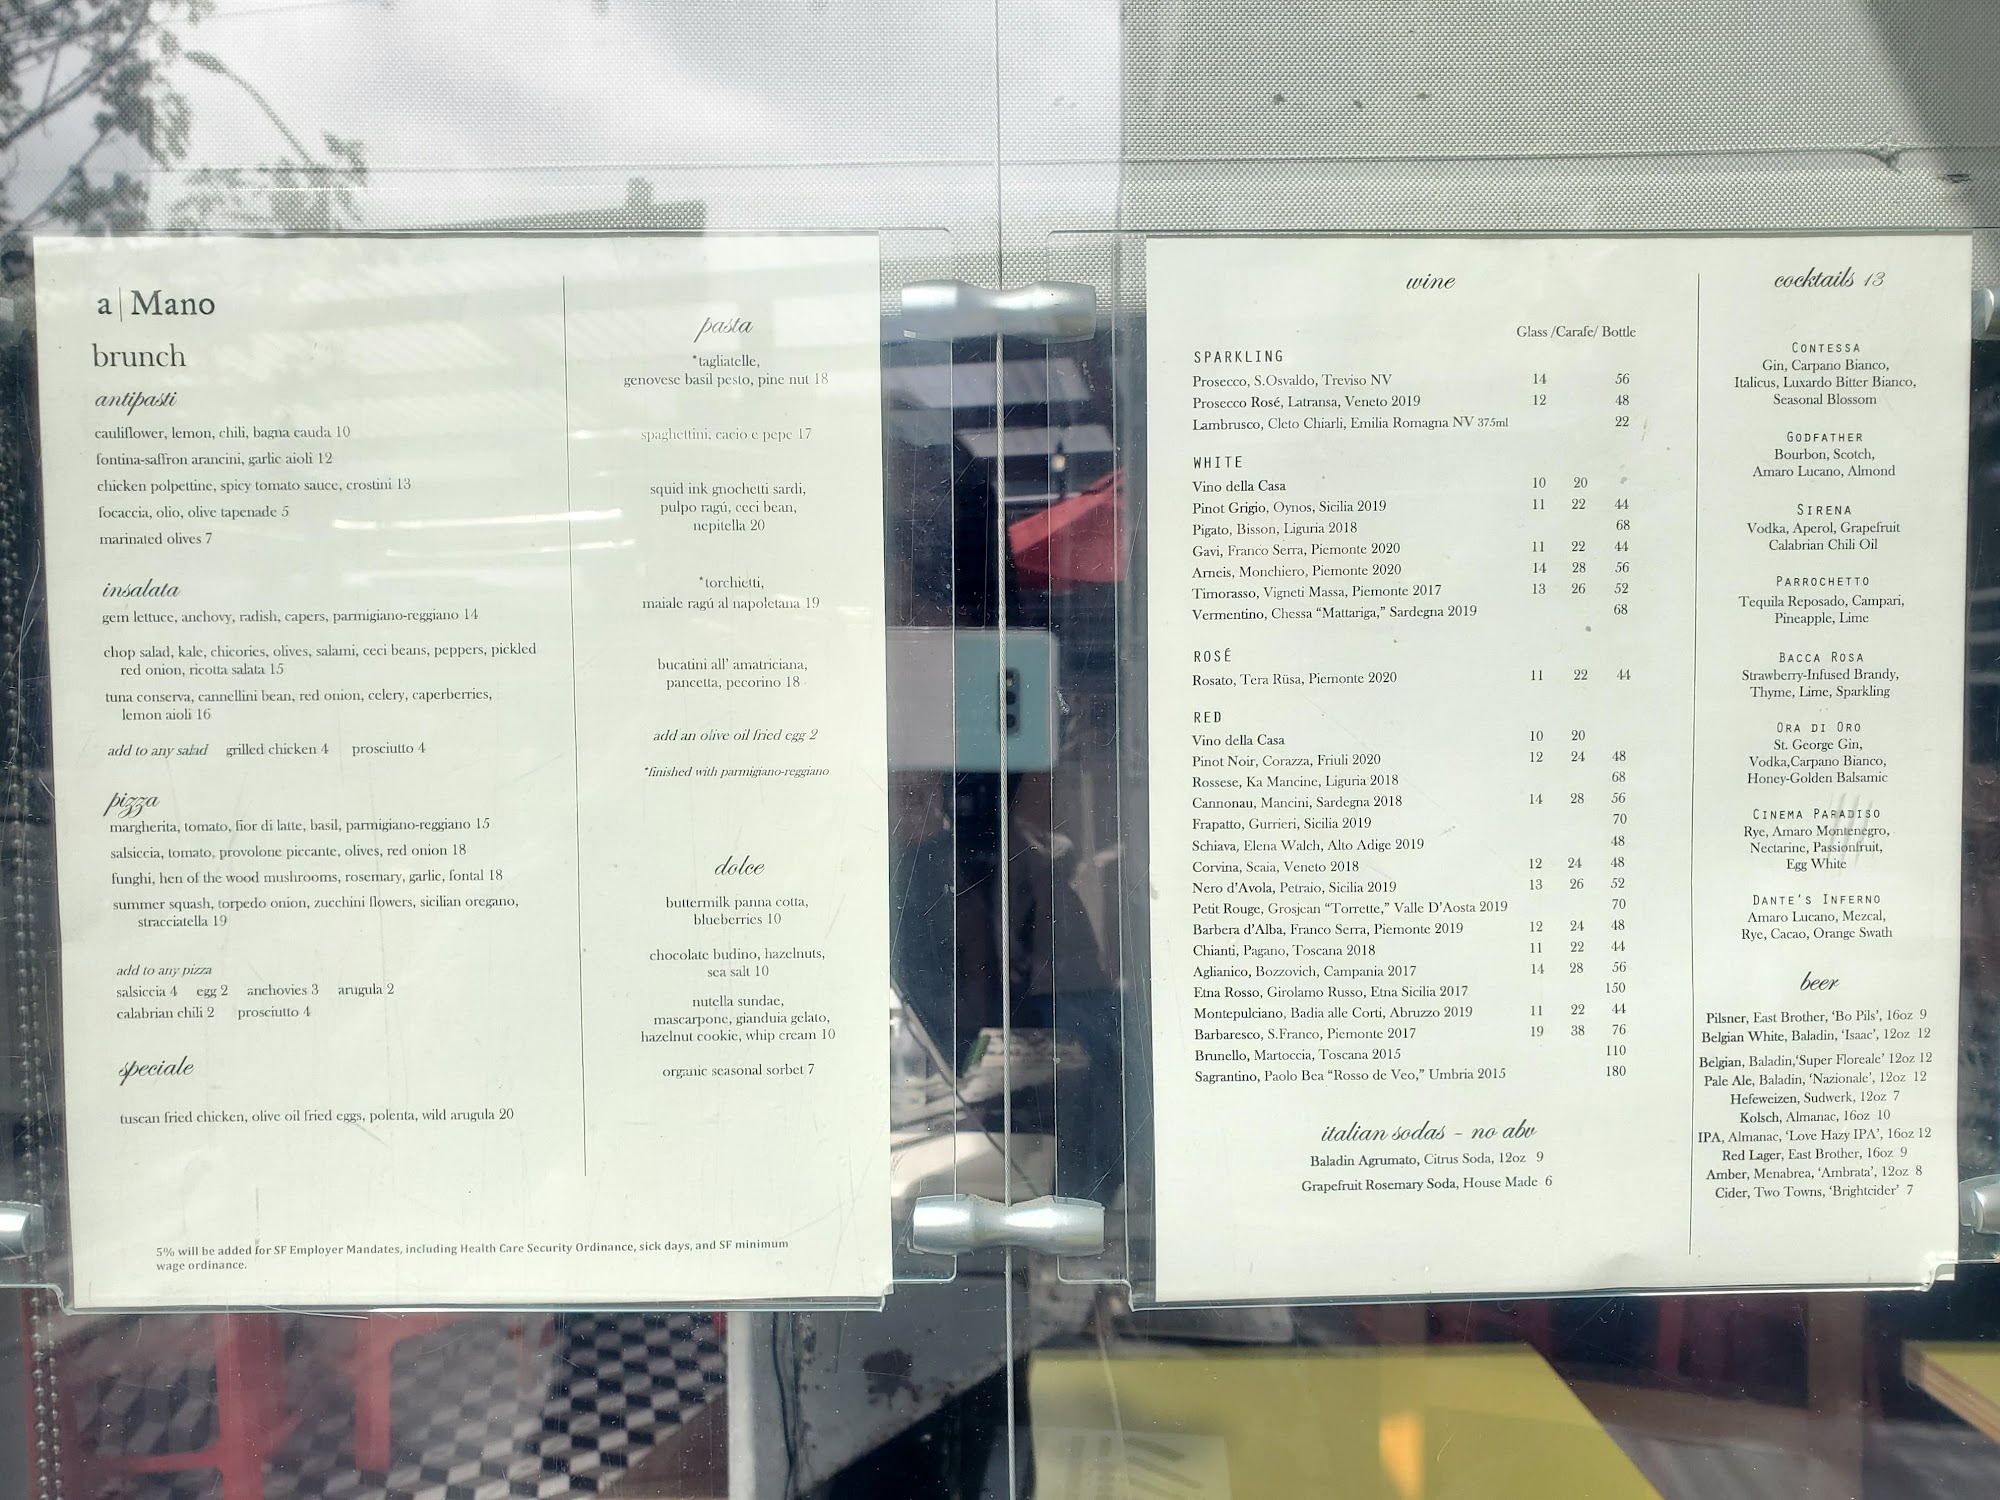 a | Mano
brunch
antipasti
cauliflower, lemon, chili, bagna cauda 10
fontina-saffron arancini, garlic aioli 12
chicken polpettine, spicy tomato sauce, crostini 13
focaccia, olio, olive tapenade 5
marinated olives 7
insalata
gem lettuce, anchovy, radish, capers, parmigiano-reggiano 14
chop salad, kale, chicories, olives, salami, ceci beans, peppers, pickled
red onion, ricotta salata 15
tuna conserva, cannellini bean, red onion, celery, caperberries,
lemon aioli 16
add to any salad grilled chicken 4 prosciutto 4
pizza
margherita, tomato, fior di latte, basil, parmigiano-reggiano 15
salsiccia, tomato, provolone piccante, olives, red onion 18
funghi, hen of the wood mushrooms, rosemary, garlic, fontal 18
summer squash, torpedo onion, zucchini flowers, sicilian oregano,
stracciatella 19
add to any pizza
salsiccia 4 egg 2 anchovies 3 arugula 2
calabrian chili 2 prosciutto 4
speciale
tuscan fried chicken, olive oil fried eggs, polenta, wild arugula 20
pasta
*tagliatelle,
genovese basil pesto, pine nut 18
spaghettini, cacio e pepe 17
squid ink gnochetti sardi,
pulpo ragú, ceci bean,
nepitella 20
*torchietti,
maiale ragú al napoletana 19
bucatini all' amatriciana,
pancetta, pecorino 18
add an olive oil fried egg 2
*finished with parmigiano-reggiano
dolce
buttermilk panna cotta,
blueberries 10
chocolate budino, hazelnuts,
sea salt 10
nutella sundae,
mascarpone, gianduia gelato,
hazelnut cookie, whip cream 10
organic seasonal sorbet 7
5% will be added for SF Employer Mandates, including Health Care Security Ordinance, sick days, and SF minimum
wage ordinance.
wine
Glass /Carafe/ Bottle
SPARKLING
Prosecco, S.Osvaldo, Treviso NV 14 56
Prosecco Rosé, Latransa, Veneto 2019 12 48
Lambrusco, Cleto Chiarli, Emilia Romagna NV 375ml 22
WHITE
Vino della Casa 10 20
Pinot Grigio, Oynos, Sicilia 2019 11 22 44
Pigato, Bisson, Liguria 2018 68
Gavi, Franco Serra, Piemonte 2020 11 22 44
Arneis, Monchiero, Piemonte 2020 14 28 56
Timorasso, Vigneti Massa, Piemonte 2017 13 26 52
Vermentino, Chessa "Mattariga," Sardegna 2019 68
ROSÉ
Rosato, Tera Rüsa, Piemonte 2020 11 22 44
RED
Vino della Casa 10 20
Pinot Noir, Corazza, Friuli 2020 12 24 48
Rossese, Ka Mancine, Liguria 2018 68
Cannonau, Mancini, Sardegna 2018 14 28 56
Frapatto, Gurrieri, Sicilia 2019 70
Schiava, Elena Walch, Alto Adige 2019 48
Corvina, Scaia, Veneto 2018 12 24 48
Nero d'Avola, Petraio, Sicilia 2019 13 26 52
Petit Rouge, Grosjean "Torrette," Valle D'Aosta 2019 70
Barbera d'Alba, Franco Serra, Piemonte 2019 12 24 48
Chianti, Pagano, Toscana 2018 11 22 44
Aglianico, Bozzovich, Campania 2017 14 28 56
Etna Rosso, Girolamo Russo, Etna Sicilia 2017 150
Montepulciano, Badia alle Corti, Abruzzo 2019 11 22 44
Barbaresco, S.Franco, Piemonte 2017 19 38 76
Brunello, Martoccia, Toscana 2015 110
Sagrantino, Paolo Bea "Rosso de Veo," Umbria 2015 180
italian sodas - no abv
Baladin Agrumato, Citrus Soda, 12oz 9
Grapefruit Rosemary Soda, House Made 6
cocktails 13
CONTESSA
Gin, Carpano Bianco,
Italicus, Luxardo Bitter Bianco,
Seasonal Blossom
GODFATHER
Bourbon, Scotch,
Amaro Lucano, Almond
SIRENA
Vodka, Aperol, Grapefruit
Calabrian Chili Oil
PARROCHETTO
Tequila Reposado, Campari,
Pineapple, Lime
BACCA ROSA
Strawberry-Infused Brandy,
Thyme, Lime, Sparkling
ORA DI ORO
St. George Gin,
Vodka,Carpano Bianco,
Honey-Golden Balsamic
CINEMA PARADISO
Rye, Amaro Montenegro,
Nectarine, Passionfruit,
Egg White
DANTE'S INFERNO
Amaro Lucano, Mezcal,
Rye, Cacao, Orange Swath
beer
Pilsner, East Brother, 'Bo Pils', 16oz 9
Belgian White, Baladin, 'Isaac', 12oz 12
Belgian, Baladin,'Super Floreale' 12oz 12
Pale Ale, Baladin, 'Nazionale', 12oz 12
Hefeweizen, Sudwerk, 12oz 7
Kolsch, Almanac, 16oz 10
IPA, Almanac, 'Love Hazy IPA', 16oz 12
Red Lager, East Brother, 16oz 9
Amber, Menabrea, 'Ambrata', 12oz 8
Cider, Two Towns, 'Brightcider' 7